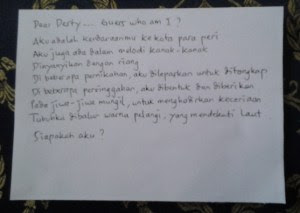 Dear Desty .... Guess who am I ?
Aku adalah kendaraanmu ke kota para peri
Aku juga ada dalam melodi kanak-kanak
Dinyanyikan dengan riang
Di beberapa pernikahan, aku dilepaskan untuk ditangkap
Di beberapa persinggahan, aku dibentuk dan diberikan
Pada jiwa-jiwa mungil, untuk menghadirkan keceriaan
Tubuhku dibalur warna pelangi, yang mendekati laut
Siapakah aku ?